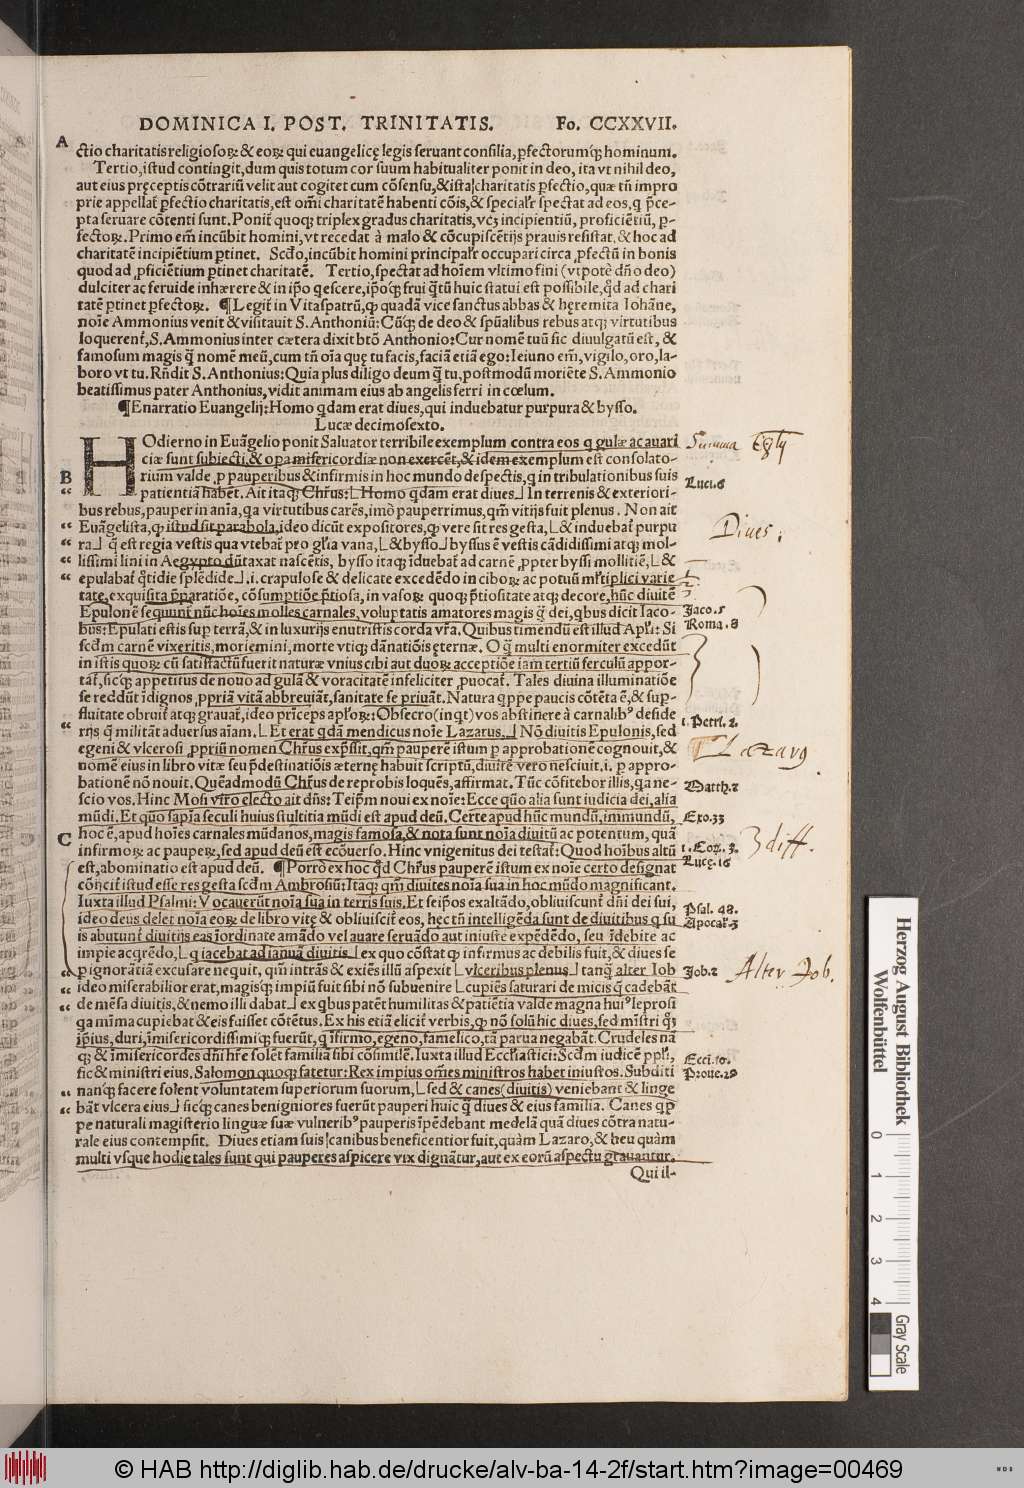 DOMINICA I. POST. TRINITATIS. Fo. CCXXVII.
A
ctio charitatis religiosoꝝ & eoꝝ qui euangelicę legis seruant consilia, ꝑfectorumq́ꝫ hominum.
Tertio, istud contingit, dum quis totum cor suum habitualiter ponit in deo, ita vt nihil deo,
aut eius pręceptis cōtrariū velit aut cogitet cum cōsensu, & ista charitatis ꝑfectio, quæ tñ impro
prie appellat̃ ꝑfectio charitatis, est om̄i charitatē habenti cōis, & specialr̃ spectat ad eos, q p̄ce-
pta seruare cōtenti sunt. Ponit̃ quoqꝫ triplex gradus charitatis, vcꝫ incipientiū, proficiētiū, ꝑ-
fectoꝝ. Primo em̄ incūbit homini, vt recedat à malo & cōcupiscētijs prauis resistat, & hoc ad
charitatē incipiētium ꝑtinet. Scđo, incūbit homini principalr̃ occupari circa ꝓfectū in bonis
quod ad ꝓficiētium ꝑtinet charitatē. Tertio, spectat ad hoīem vltimo fini (vtpotè dño deo)
dulciter ac feruide inhærere & in ip̄o qescere, ip̄oqꝫ frui q̄tū huic statui est possibile, qđ ad chari
tatē ptinet ꝑfectoꝝ. ¶ Legit̃ in Vitaspatrū, ꝙ quadā vice sanctus abbas & hęremita Iohāne,
noīe Ammonius venit & visitauit S. Anthoniū: Cūqꝫ de deo & spūalibus rebus atqꝫ virtutibus
loquerent̃, S. Ammonius inter cætera dixit btō Anthonio: Cur nomē tuū sic diuulgatū est, &
famosum magis q̄ nomē meū, cum tñ oīa quę tu facis, faciā etiā ego: Ieiuno em̄, vigilo, oro, la-
boro vt tu. Rñdit S. Anthonius: Quia plus diligo deum q̄ tu, postmodū moriēte S. Ammonio
beatissimus pater Anthonius, vidit animam eius ab angelis ferri in cœlum.
¶ Enarratio Euangelij: Homo qdam erat diues, qui induebatur purpura & bysso.
Lucæ decimosexto.
HOdierno in Euāgelio ponit Saluator terribile exemplum contra eos q gulæ ac auari
Summa
ciæ sunt subiecti, & opa misericordiæ non exercēt, & idem exemplum est consolato-
B
rium valde, ꝓ pauperibus & infirmis in hoc mundo despectis, q in tribulationibus suis
Luci.6
patientiā habēt. Ait itaqꝫ Chr̄us: Homo qdam erat diues In terrenis & exteriori-
bus rebus, pauper in anīa, qa virtutibus carēs, imò pauperrimus, qm̄ vitijs fuit plenus. Non ait
Euāgelista, ꝙ istud sit parabola, ideo dicūt expositores, ꝙ vere sit res gesta, & induebat̃ purpu
Diues
ra q̄ est regia vestis qua vtebat̃ pro gl̄ia vana, & bysso byssus ē vestis cādidissimi atqꝫ mol-
lissimi lini in Aegypto dūtaxat nascētis, bysso itaqꝫ īduebat̃ ad carnē ꝓpter byssi mollitiē, &
epulabat̃ q̄tidie splēdide .i. crapulose & delicate excedēdo in ciboꝝ ac potuū mr̄tiplici varie
tate, exquisita p̄paratiōe, cōsumptiōe p̄tiosa, in vasoꝝ quoqꝫ p̄tiositate atqꝫ decore, hūc diuitē
Epulonē sequunt̃ nūc hoīes molles carnales, voluptatis amatores magis q̄ dei, qbus dicit Iaco-
Jaco.5
bus: Epulati estis sup̄ terrā, & in luxurijs enutristis corda vr̄a. Quibus timendū est illud Ap̄li: Si
Roma.8
scđm carnē vixeritis, moriemini, morte vtiqꝫ dānatiōis ęternæ. O q̄ multi enormiter excedūt
in istis quoꝝ cū satisfactū fuerit naturæ vnius cibi aut duoꝝ acceptiōe iam tertiū ferculū appor-
tāt̃, sicqꝫ appetitus de nouo ad gulā & voracitatē infeliciter ꝓuocat̃. Tales diuina illuminatiōe
se reddūt īdignos, ꝓpriā vitā abbreuiāt, sanitate se priuāt. Natura qppe paucis cōtēta ē, & sup̄-
fluitate obruit̃ atqꝫ grauat̃, ideo prīceps ap̄loꝝ: Obsecro (inqt) vos abstinere à carnalibꝰ deside
i. Petri. 2.
rijs q̄ militāt aduersus aīam. Et erat qdā mendicus noīe Lazarus. Nō diuitis Epulonis, sed
egeni & vlcerosi ꝓpriū nomen Chr̄us exp̄ssit, qm̄ pauperē istum ꝑ approbationē cognouit, &
Lazarg
nomē eius in libro vitæ seu p̄destinatiōis æternę habuit scriptū, diuitē vero nesciuit, i. ꝑ appro-
bationē nō nouit. Quēadmodū Chr̄us de reprobis loquēs, affirmat. Tūc cōfitebor illis, qa ne-
Matth.7
scio vos. Hinc Mosi viro electo ait dñs: Teip̄m noui ex noīe: Ecce quō alia sunt iudicia dei, alia
mūdi. Et quo sapīa seculi huius stultitia mūdi est apud deū. Certe apud hūc mundū, immundū,
Exo.33
C
hoc ē, apud hoīes carnales mūdanos, magis famosa, & nota sunt noīa diuitū ac potentum, quā
3 diff.
infirmoꝝ ac paupeꝝ, sed apud deū est ecōuerso. Hinc vnigenitus dei testat̃: Quod hoībus altū
i. Coꝝ. 3.
est, abominatio est apud deū. ¶ Porrò ex hoc qđ Chr̄us pauperē istum ex noīe certo designat
Lucę.16
cōijcit istud esse res gesta scđm Ambrosiū: Itaqꝫ qm̄ diuites noīa sua in hoc mūdo magnificant.
Iuxta illud Psalmi: Vocauerūt noīa sua in terris suis. Et seip̄os exaltādo, obliuiscunt̃ dñi dei sui,
Psal. 48.
ideo deus delet noīa eoꝝ de libro vitę & obliuiscit̃ eos, hęc tñ intelligēda sunt de diuitibus q su
Apocal̃.3
is abutunt̃ diuitijs eas īordinate amādo vel auare seruādo aut iniuste expēdēdo, seu īdebite ac
impie acqrēdo, q iacebat ad ianuā diuitis ex quo cōstat ꝙ infirmus ac debilis fuit, & diues se
ꝑ ignorātiā excusare nequit, qm̄ intrās & exiēs illū aspexit vlceribus plenus tanq̄ alter Iob
Job.2
Alter Job.
ideo miserabilior erat, magisqꝫ impiū fuit sibi nō subuenire cupiēs saturari de micis q̄ cadebāt
de mēsa diuitis, & nemo illi dabat ex qbus patēt humilitas & patiētia valde magna huiꝰ leprosi
qa mīma cupiebat & eis fuisset cōtētus. Ex his etiā elicit̃ verbis, ꝙ nō solū hic diues, sed mīstri qꝫ
ip̄ius, duri, īmisericordissimiqꝫ fuerūt, q īfirmo, egeno, famelico, tā parua negabāt. Crudeles nā
qꝫ & īmisericordes dñi hr̄e solēt familiā sibi cōsimilē. Iuxta illud Eccl̄iastici: Scđm iudicē pp̄li,
Ecci.10.
sic & ministri eius. Salomon quoqꝫ fatetur: Rex impius om̄es ministros habet iniustos. Subditi
Proue.29
nanqꝫ facere solent voluntatem superiorum suorum, sed & canes (diuitis) veniebant & linge
bāt vlcera eius sicqꝫ canes benigniores fuerūt pauperi huic q̄ diues & eius familia. Canes qp̄
pe naturali magisterio linguæ suæ vulneribꝰ pauperis īpēdebant medelā quā diues cōtra natu-
rale eius contempsit. Diues etiam suis canibus beneficentior fuit, quàm Lazaro, & heu quàm
multi vsque hodie tales sunt qui pauperes aspicere vix dignātur, aut ex eorū aspectu grauantur.
Qui il-
Herzog August Bibliothek
Wolfenbüttel
0 1 2 3 4
Gray Scale
© HAB http://diglib.hab.de/drucke/alv-ba-14-2f/start.htm?image=00469